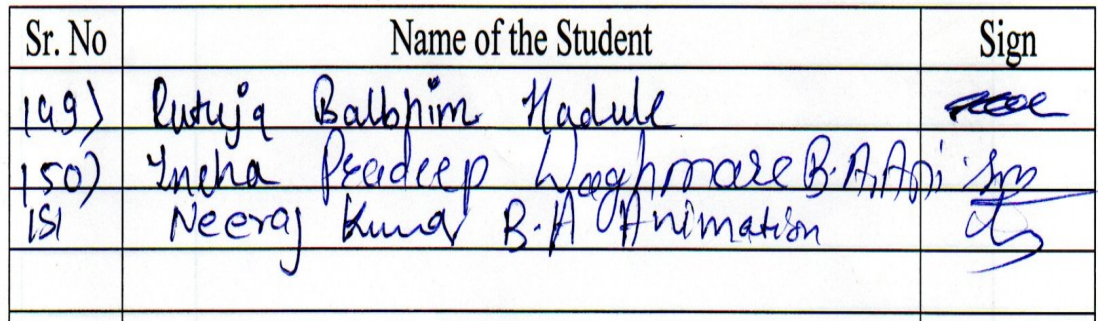 Sr. No Name of the Student Sign
149) Rutuja Balbhim Hadule
150) Sneha Pradeep Waghmare B.A. Ani.
151 Neeraj Kumar B.A Animation